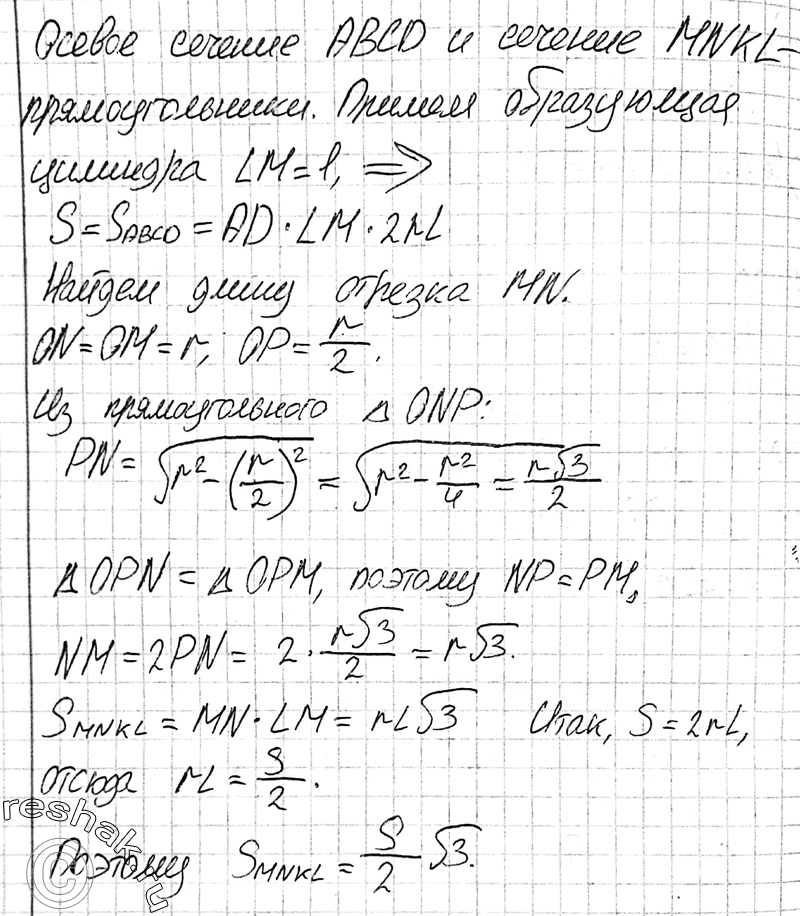 Осевое сечение ABCD и сечение MNKL-
прямоугольники. Примем образующая
цилиндра LM = l, ⇒
S = S_ABCD = AD · LM · 2rL
Найдем длину отрезка MN.
ON = OM = r; OP = r/2.
Из прямоугольного Δ ONP:
PN = √(r² - (r/2)²) = √(r² - r²/4) = r√3/2
Δ OPN = Δ OPM, поэтому NP = PM,
NM = 2PN = 2 · r√3/2 = r√3.
S_MNKL = MN · LM = rL√3 Итак, S = 2rL,
отсюда rL = S/2.
Поэтому S_MNKL = S/2 √3.
reshak.ru
©